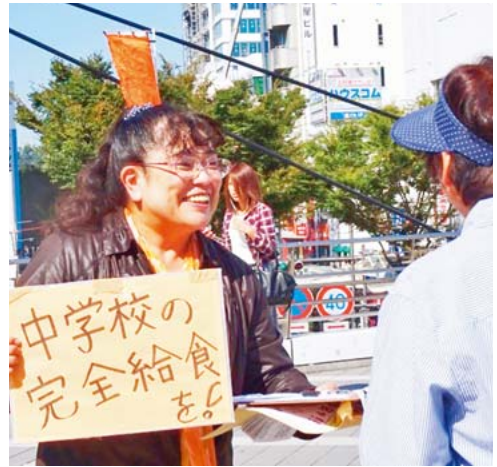 屋ビル
ハウスコム
40
中学校の
完全給食
を!